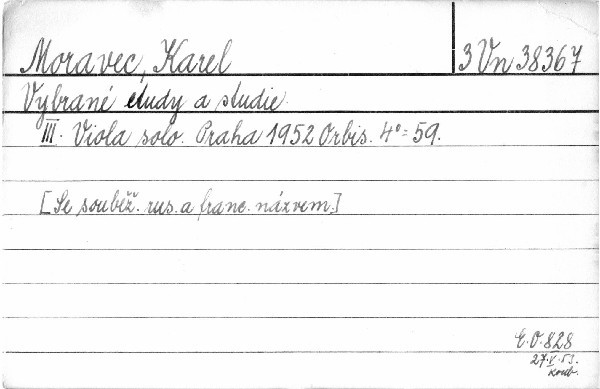 Moravec, Karel
3 Vn 38367
Vybrané etudy a studie.
III. Viola solo. Praha 1952 Orbis. 4° = 59.
[Se souběž. rus. a franc. názvem.]
E.O. 828
27.V.53.